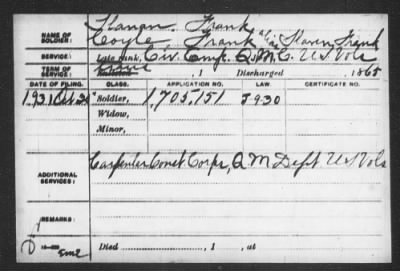 Flanan, Frank
NAME OF SOLDIER: Coyle Frank a/n Slaven, Frank
SERVICE: Late rank, Civ. Emp. Q.M.C. U.S. Vols
TERM OF SERVICE: Enlisted , 1 Discharged , 1865
DATE OF FILING. CLASS. APPLICATION NO. LAW. CERTIFICATE NO.
1931 Oct 24 Soldier, 1,705,151 5-9-30
Widow,
Minor,
ADDITIONAL SERVICES: Carpenter Const. Corps, Q.M. Dept U.S. Vols
REMARKS:
Died , 1 , at